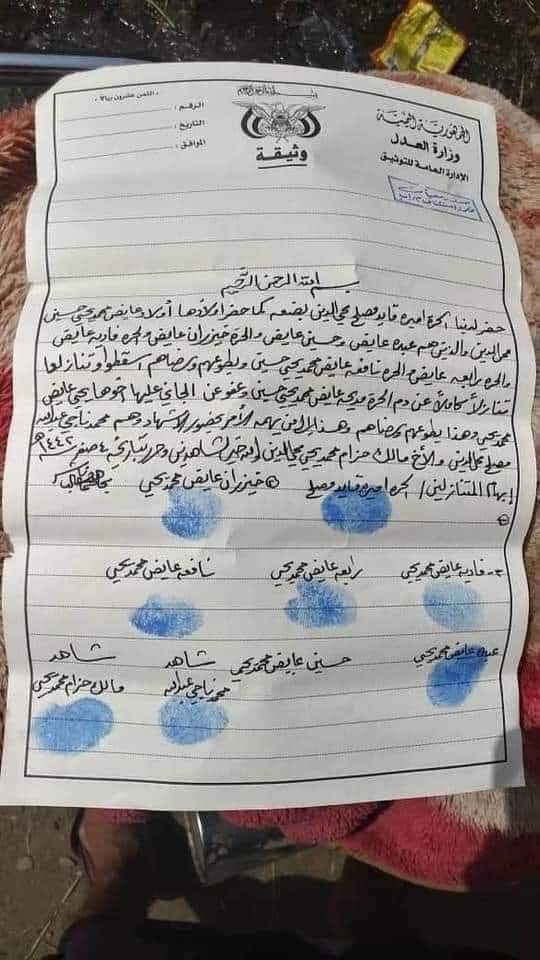 « الثمن عشرون ريالا »
الرقم :
التاريخ :
الموافق :
بسم الله الرحمن الرحيم
وثيقة
الجمهورية اليمنية
وزارة العدل
الإدارة العامة للتوثيق
بسم الله الرحمن الرحيم
حضر لدينا الحرة اميره قايد مصلح محي الدين بضعه كما حضر اولادها أولاد عايض محمد يحيى حسين
محي الدين والذين هم عبده عايض وحسين عايض والحرة خيزران عايض والحره فاديه عايض
والحره رابعه عايض والحره نافعه عايض محمد يحيى حسين وبطوعهم ورضاهم اسقطوا وتنازلوا
تنازلاً كاملاً عن دم الحرة مديحه عايض محمد يحيى حسين وعفو عن الجاني عليها اخوها يحيى عايض
محمد يحيى وهذا بطوعهم ورضاهم وهذا لمن يهمه الأمر بحضور الاشهاد وهم محمد ناجي عبدالله
مصلح محي الدين والأخ مالك حزام محمد يحيى محي الدين والله خير الشاهدين وحرر بتاريخ ٤ صفر ١٤٤٢هـ
إبهام المتنازلين / الحره اميره قايد مصلح ② خيزران عايض محمد يحيى
٣- فاديه عايض محمد يحيى رابعه عايض محمد يحيى نافعه عايض محمد يحيى
عبده عايض محمد يحيى حسين عايض محمد يحيى شاهد شاهد
محمد ناجي عبدالله مالك حزام محمد يحيى